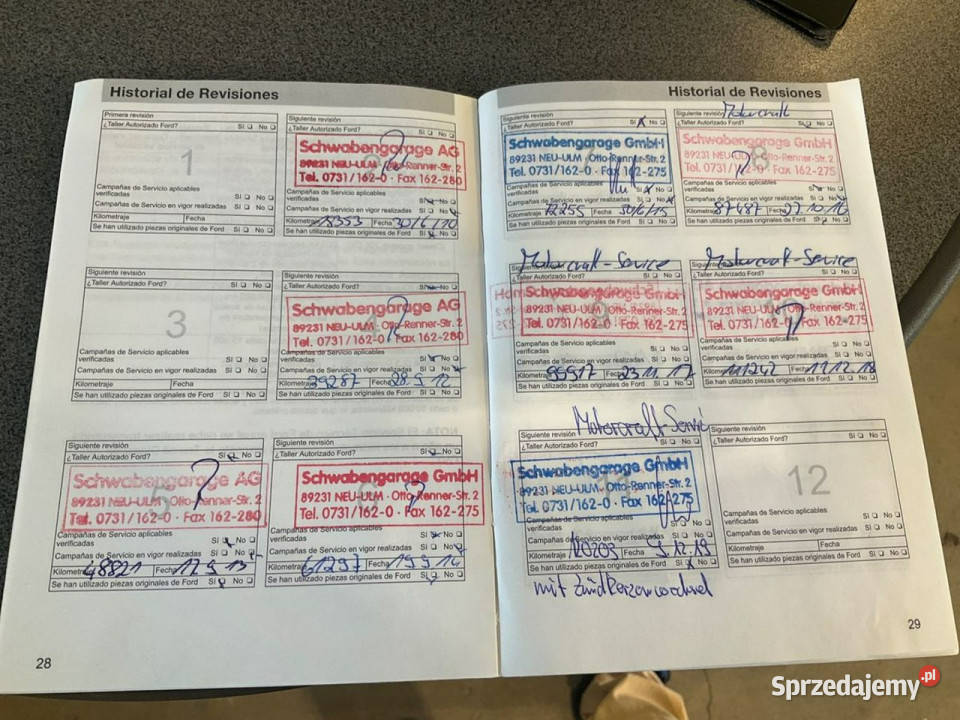 Historial de Revisiones
Primera revisión
¿Taller Autorizado Ford? Sí No
1
Campañas de Servicio aplicables
verificadas Sí No
Campañas de Servicio en vigor realizadas Sí No
Kilometraje Fecha
Se han utilizado piezas originales de Ford Sí No
Siguiente revisión
¿Taller Autorizado Ford? Sí No
Schwabengarage AG
89231 NEU-ULM · Otto-Renner-Str. 2
Tel. 0731/162-0 · Fax 162-280
Campañas de Servicio aplicables
verificadas Sí No
Campañas de Servicio en vigor realizadas Sí No
Kilometraje 18553 Fecha 30/6/10
Se han utilizado piezas originales de Ford Sí No
Siguiente revisión
¿Taller Autorizado Ford? Sí No
3
Campañas de Servicio aplicables
verificadas Sí No
Campañas de Servicio en vigor realizadas Sí No
Kilometraje Fecha
Se han utilizado piezas originales de Ford Sí No
Siguiente revisión
¿Taller Autorizado Ford? Sí No
Schwabengarage AG
89231 NEU-ULM · Otto-Renner-Str. 2
Tel. 0731/162-0 · Fax 162-280
Campañas de Servicio aplicables
verificadas Sí No
Campañas de Servicio en vigor realizadas Sí No
Kilometraje 39287 Fecha 28.5.12
Se han utilizado piezas originales de Ford Sí No
Siguiente revisión
¿Taller Autorizado Ford? Sí No
Schwabengarage AG
89231 NEU-ULM · Otto-Renner-Str. 2
Tel. 0731/162-0 · Fax 162-280
Campañas de Servicio aplicables
verificadas Sí No
Campañas de Servicio en vigor realizadas Sí No
Kilometraje 48821 Fecha 12.9.13
Se han utilizado piezas originales de Ford Sí No
Siguiente revisión
¿Taller Autorizado Ford? Sí No
Schwabengarage GmbH
89231 NEU-ULM · Otto-Renner-Str. 2
Tel. 0731/162-0 · Fax 162-275
Campañas de Servicio aplicables
verificadas Sí No
Campañas de Servicio en vigor realizadas Sí No
Kilometraje 61297 Fecha 15.9.14
Se han utilizado piezas originales de Ford Sí No
28
Historial de Revisiones
Siguiente revisión
¿Taller Autorizado Ford? Sí No
Schwabengarage GmbH
89231 NEU-ULM · Otto-Renner-Str. 2
Tel. 0731/162-0 · Fax 162-275
Campañas de Servicio aplicables
verificadas Sí No
Campañas de Servicio en vigor realizadas Sí No
Kilometraje 72255 Fecha 30/6/15
Se han utilizado piezas originales de Ford Sí No
Motorcraft
Siguiente revisión
¿Taller Autorizado Ford? Sí No
8
Schwabengarage GmbH
89231 NEU-ULM · Otto-Renner-Str. 2
Tel. 0731/162-0 · Fax 162-275
Campañas de Servicio aplicables
verificadas Sí No
Campañas de Servicio en vigor realizadas Sí No
Kilometraje 87487 Fecha
Se han utilizado piezas originales de Ford Sí No
Motorcraft-Service
¿Taller Autorizado Ford? Sí No
Schwabengarage GmbH
89231 NEU-ULM · Otto-Renner-Str. 2
Tel. 0731/162-0 · Fax 162-275
Campañas de Servicio aplicables
verificadas Sí No
Campañas de Servicio en vigor realizadas Sí No
Kilometraje 99917 Fecha 23.11.17
Se han utilizado piezas originales de Ford Sí No
Motorcraft-Service
¿Taller Autorizado Ford? Sí No
Schwabengarage GmbH
89231 NEU-ULM · Otto-Renner-Str. 2
Tel. 0731/162-0 · Fax 162-275
Campañas de Servicio aplicables
verificadas Sí No
Campañas de Servicio en vigor realizadas Sí No
Kilometraje 111242 Fecha 11.12.18
Se han utilizado piezas originales de Ford Sí No
Motorcraft-Servic
Siguiente revisión
¿Taller Autorizado Ford? Sí No
Schwabengarage GmbH
89231 NEU-ULM · Otto-Renner-Str. 2
Tel. 0731/162-0 · Fax 162-275
Campañas de Servicio aplicables
verificadas Sí No
Campañas de Servicio en vigor realizadas Sí No
Kilometraje 120203 Fecha 9.12.19
Se han utilizado piezas originales de Ford Sí No
mit Zündkerzenwechsel
Siguiente revisión
¿Taller Autorizado Ford? Sí No
12
Campañas de Servicio aplicables
verificadas Sí No
Campañas de Servicio en vigor realizadas Sí No
Kilometraje Fecha
Se han utilizado piezas originales de Ford Sí No
29
Sprzedajemy.pl